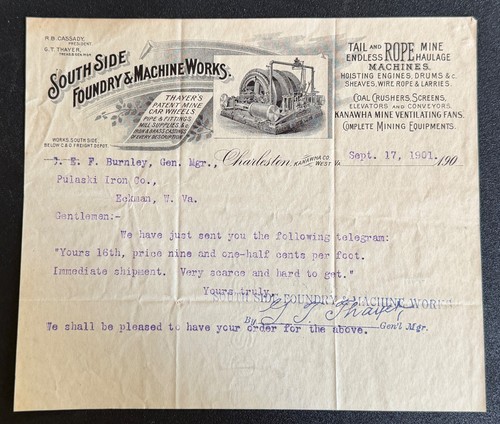 R.B. CASSADY,
PRESIDENT.
G.T. THAYER,
TREAS. & GEN. MGR.
SOUTH SIDE
FOUNDRY & MACHINE WORKS.
THAYER'S
PATENT MINE
CAR WHEELS
PIPE & FITTINGS
MILL SUPPLIES, &c.
IRON & BRASS CASTINGS
OF EVERY DESCRIPTION.
WORKS, SOUTH SIDE
BELOW C. & O. FREIGHT DEPOT.
TAIL AND ROPE MINE
ENDLESS HAULAGE
MACHINES.
HOISTING ENGINES, DRUMS &c.
SHEAVES, WIRE ROPE & LARRIES.
COAL CRUSHERS, SCREENS,
ELEVATORS AND CONVEYORS.
KANAWHA MINE VENTILATING FANS.
COMPLETE MINING EQUIPMENTS.
Charleston, KANAWHA CO. WEST VA. Sept. 17, 1901. 190
E. F. Burnley, Gen. Mgr.,
Pulaski Iron Co.,
Eckman, W. Va.
Gentlemen:-
We have just sent you the following telegram:
"Yours 16th, price nine and one-half cents per foot.
Immediate shipment. Very scarce and hard to get."
Yours truly,
SOUTH SIDE FOUNDRY & MACHINE WORKS
By G T Thayer, Gen'l Mgr.
We shall be pleased to have your order for the above.